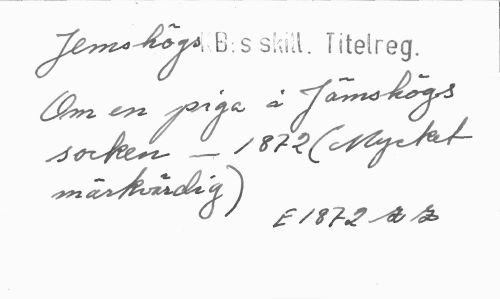 Jemshögs KB:s skill. Titelreg.
Om en piga i Jämshögs
socken — 1872 (Mycket
märkvärdig)
E 1872